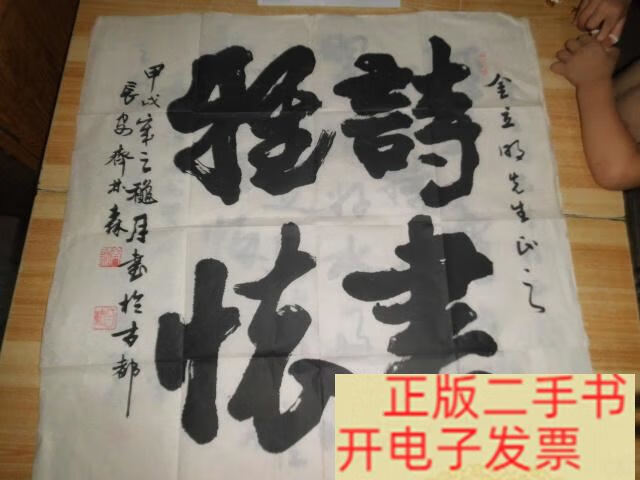 金立明先生正之
詩書
雅怀
甲戌年之穐月書於古都
长安齐井森
正版二手书
开电子发票